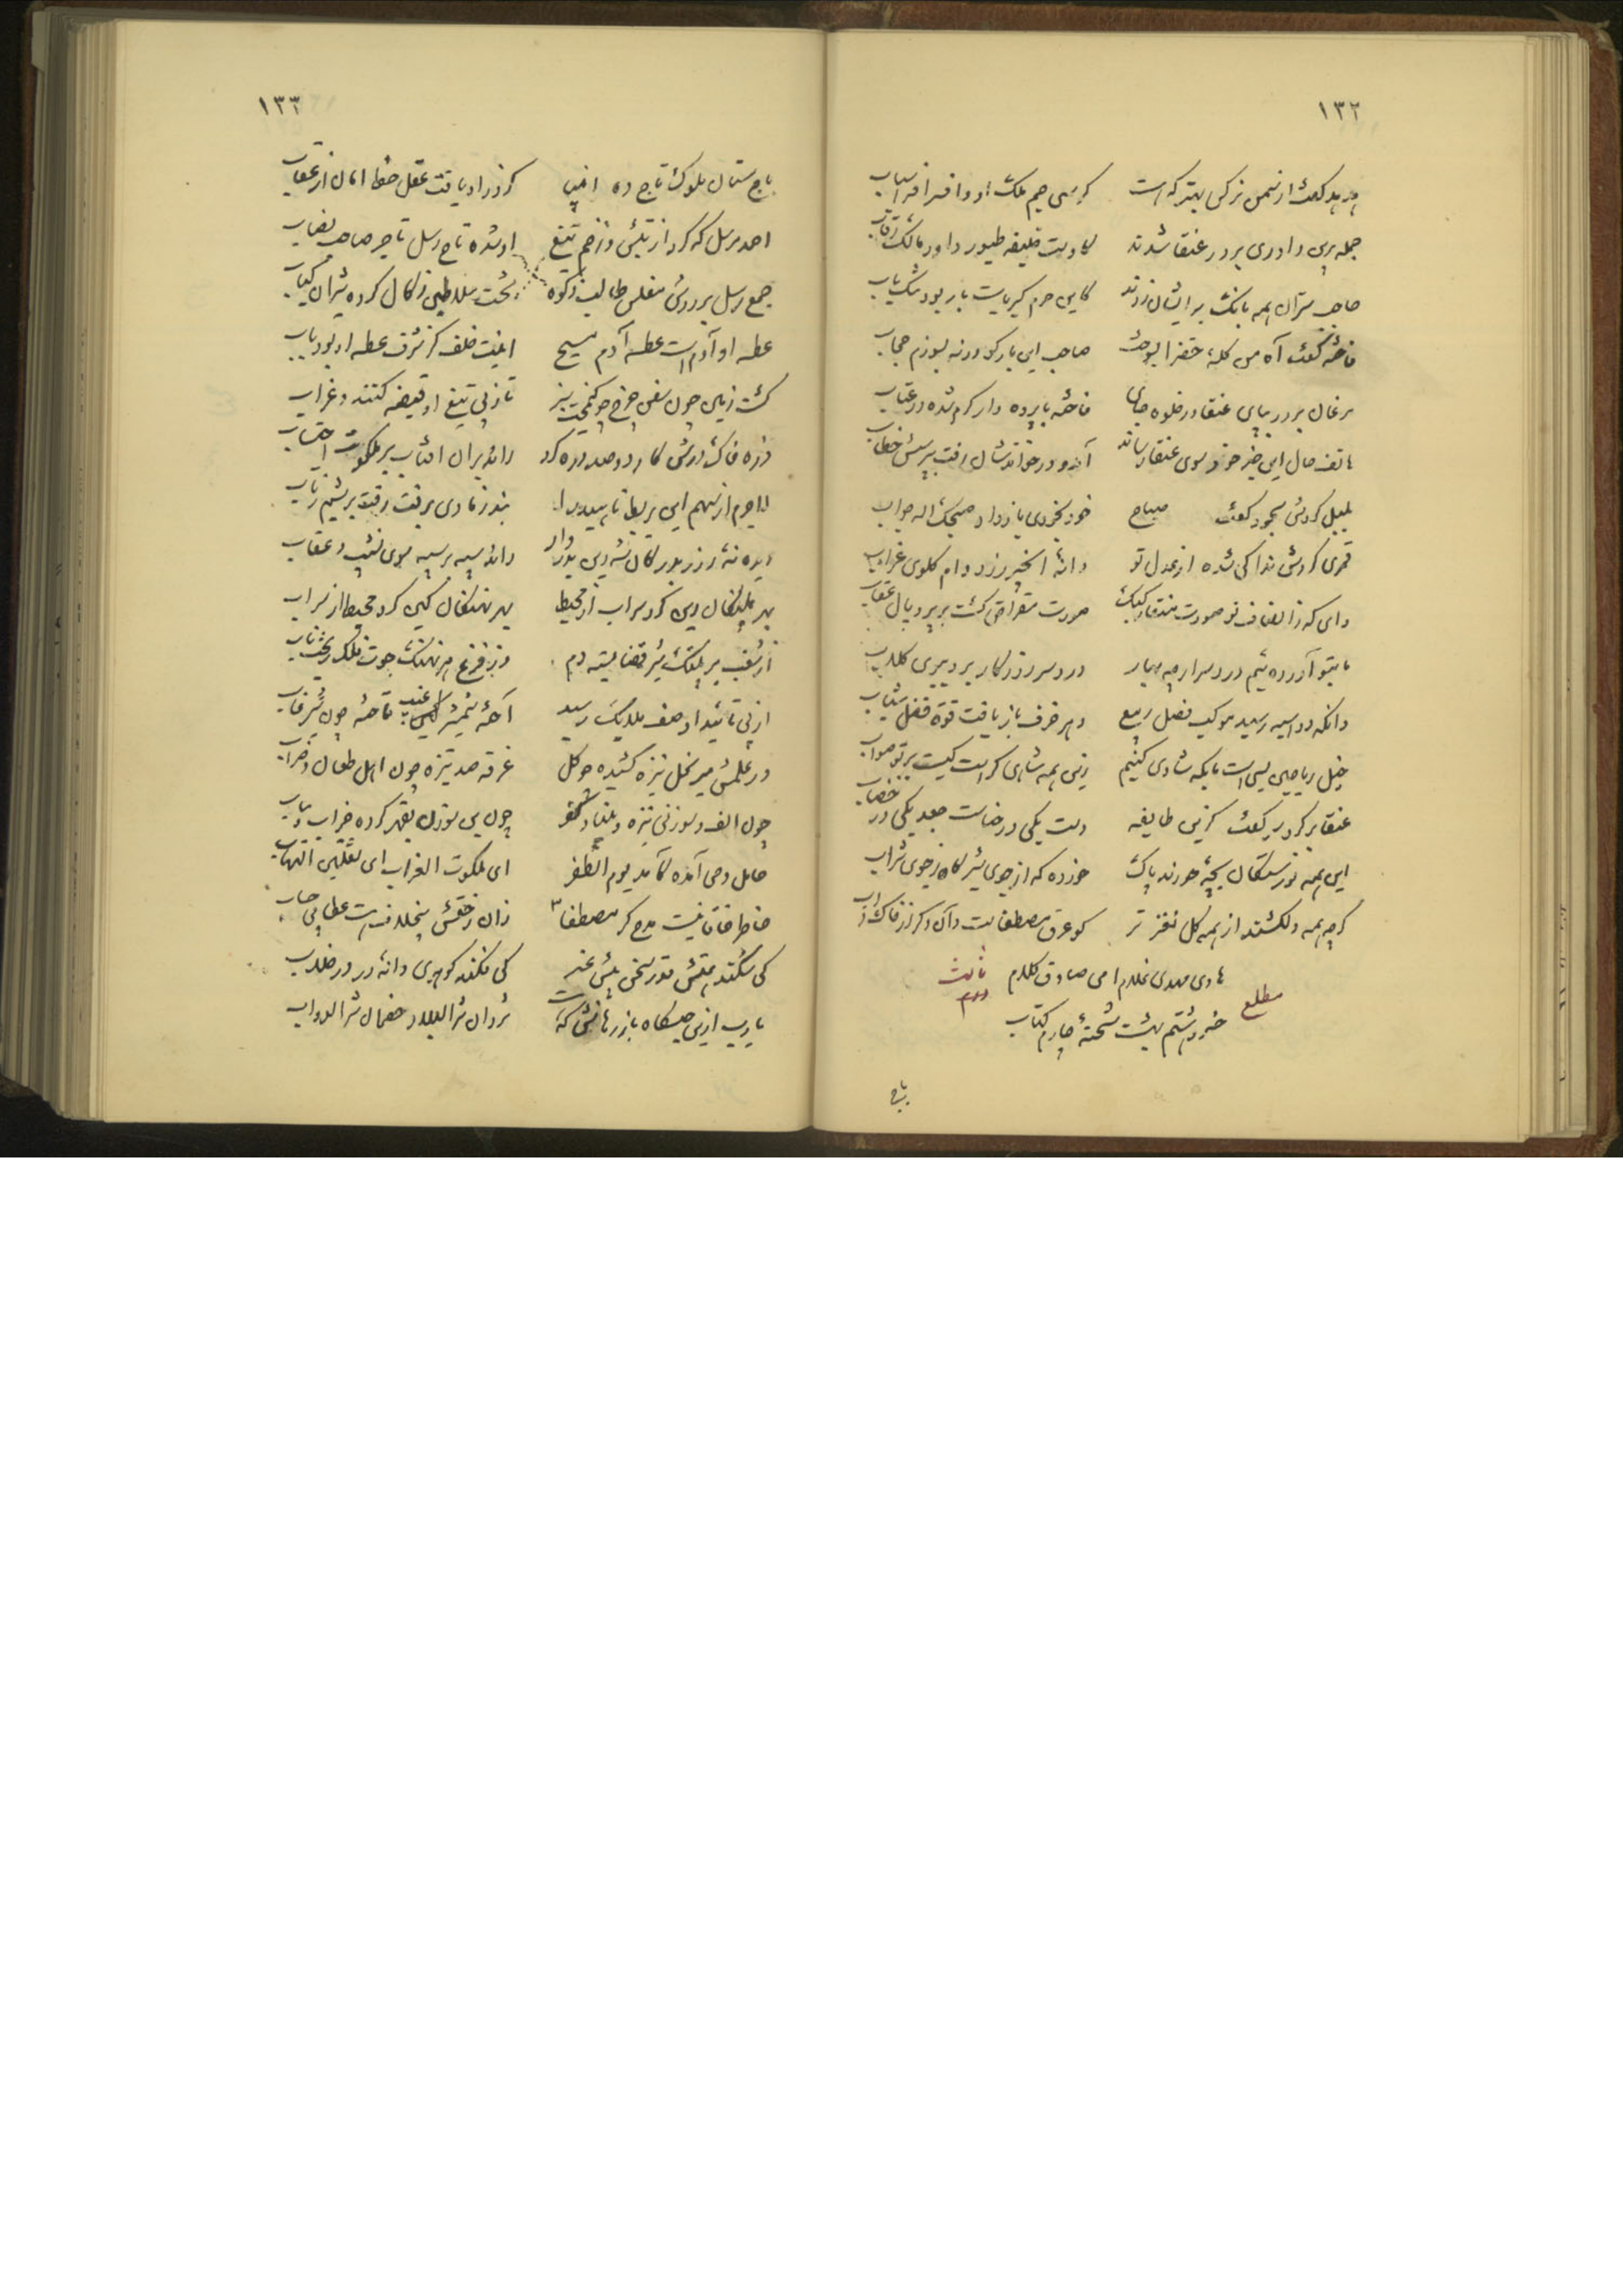 ۱۳۲
هدهد گفت از سمن نرگس بهتر که است کرسی جم ملک او و افسر افراسیاب
جمله بدین داوری بر در عنقا شدند کاوست خلیفه طیور داور مالک رقاب
صاحب ستران همه بانگ بر ایشان زدند کاین حرم کبریاست بار بود تنگ‌یاب
فاخته گفت آه من کله خضرا بسوخت حاجب این بار کو ورنه بسوزم حجاب
مرغان بر در بپای عنقا در خلوه جای فاخته با پرده دار گرم شده در عتاب
هاتف حال این خبر چون سوی عنقا رساند آمد و درخواندشان رفت بپرسش خطاب
بلبل کردش سجود گفت صباح خود بخودی باز داد صبحک الله جواب
قمری کردش ندا کی شده از عدل تو دانه انجیر رزد دام گلوی غراب
وای که ز انصاف تو صورت منقار کبک صورت مقراض گشت بر پر و بال عقاب
ما بتو آورده‌ایم درد سر ارچه بهار درد سر روزگار برد ببوی گلاب
دانکه دو اسبه رسید موکب فصل ربیع دهر خرف باز یافت قوة فضل شباب
خیل ریاحین بسی است ما بکه شادی کنیم زین همه شاهی کراست کیست بر تو صواب
عنقا بر کرد سر گفت کزین طایفه دست یکی در حناست جعد یکی در خضاب
این همه نورستگان بچه حورند پاک خورده گه از جوی شیر گاه ز جوی شراب
گرچه همه دلکشند از همه گل نغزتر کو عرق مصطفاست وآن دگر از خاک و آب
هادی مهدی غلام امی صادق کلام ثالث
مطلع خسرو هشتم بهشت شحنهٔ چارم کتاب دوم
باج
۱۳۳
باج ستان ملوک تاج ده انبیا کز در او یافت عقل خط امان از عقاب
احمد مرسل که کرد از تپش و زخم تیغ اوشده تاج رسل تاجر صاحب نصاب
جمع رسل بر درش مفلس طالب زکوه تخت سلاطین زکال کرده شیران کباب
عطسه او آدم است عطسه آدم مسیح اینت خلف کز شرف عطسه او بود باب
گشت زمین چون سفن چرخ چو کیمخت سبز تا ز پی تیغ او قبضه کنند و غراب
ذره خاک درش کار دو صد دره کرد راند بران آفتاب بر ملکوت احتساب
لاجرم از سهم این بربط ناهید را بندرها دی برفت رفت بریشم ز تاب
دیده نهٔ روز بدر کان شه دین بدروار راند سپه بر سپه سوی نشیب و عقاب
بهر پلنگان دین کرد سراب از محیط بهر نهنگان کین کرد محیط از سراب
از شغب هر پلنگ شیر قضا بسته دم وز فزع هر نهنگ حوت فلک ریخت ناب
از پی تائید او صف ملایک رسید آخته شمشیر غیب تاخته چون شیر غاب
در علمش میر نحل نیزه کشیده چو نخل غرقه صد نیزه چون اهل طعان و ضراب
چون الف سوزنی نیزه و بنیاد کفر چون بن سوزن بقهر کرده خراب و یباب
حامل وحی آمده کآمد یوم الظفر ای ملکوت الغراب ای ثقلین التهاب
خاطر خاقانیست مدح گر مصطفا زان ز حقش بیخلاف هست عطا بی حساب
کی شکند همتش قدر سخن پیش غیر کی فکند گوهری دانه در در خلاب
یارب ازین حبسگاه باز رهانش که هست شروان شر البلاد خصمان شر الدواب